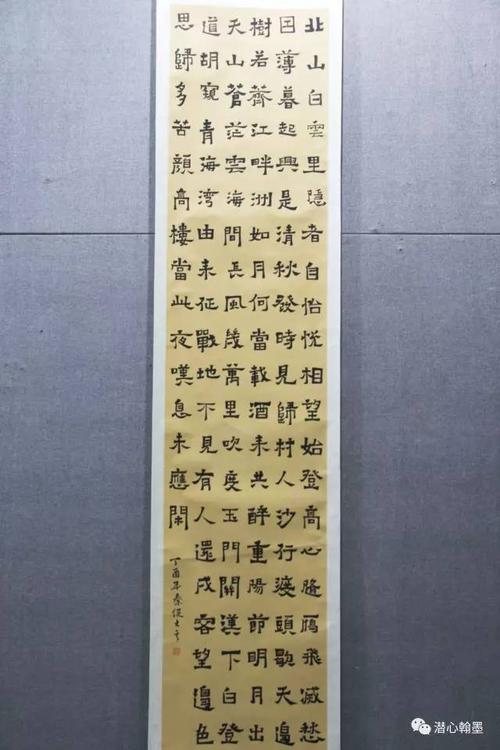 北山白雲里隱者自怡悅相望始登高心隨鴈飛滅愁
因薄暮起興是清秋發時見歸村人沙行渡頭歇天邊
樹若薺江畔洲如月何當載酒來共醉重陽節明月出
天山蒼茫雲海間長風幾萬里吹度玉門關漢下白登
道胡窺青海湾由来征戰地不見有人還戍客望邊色
思歸多苦顏高樓當此夜嘆息未應閑
丁酉年秦俊
潜心翰墨